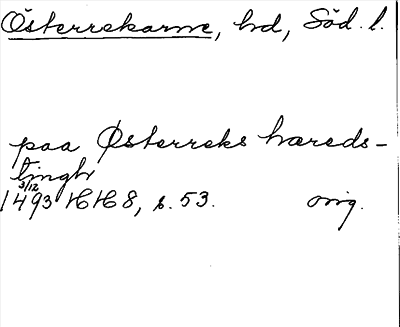 Österrekarne, hd, Söd. l.
paa Østerreks hæreds-
tingh
3/12
1493 HH 8, s. 53. orig.